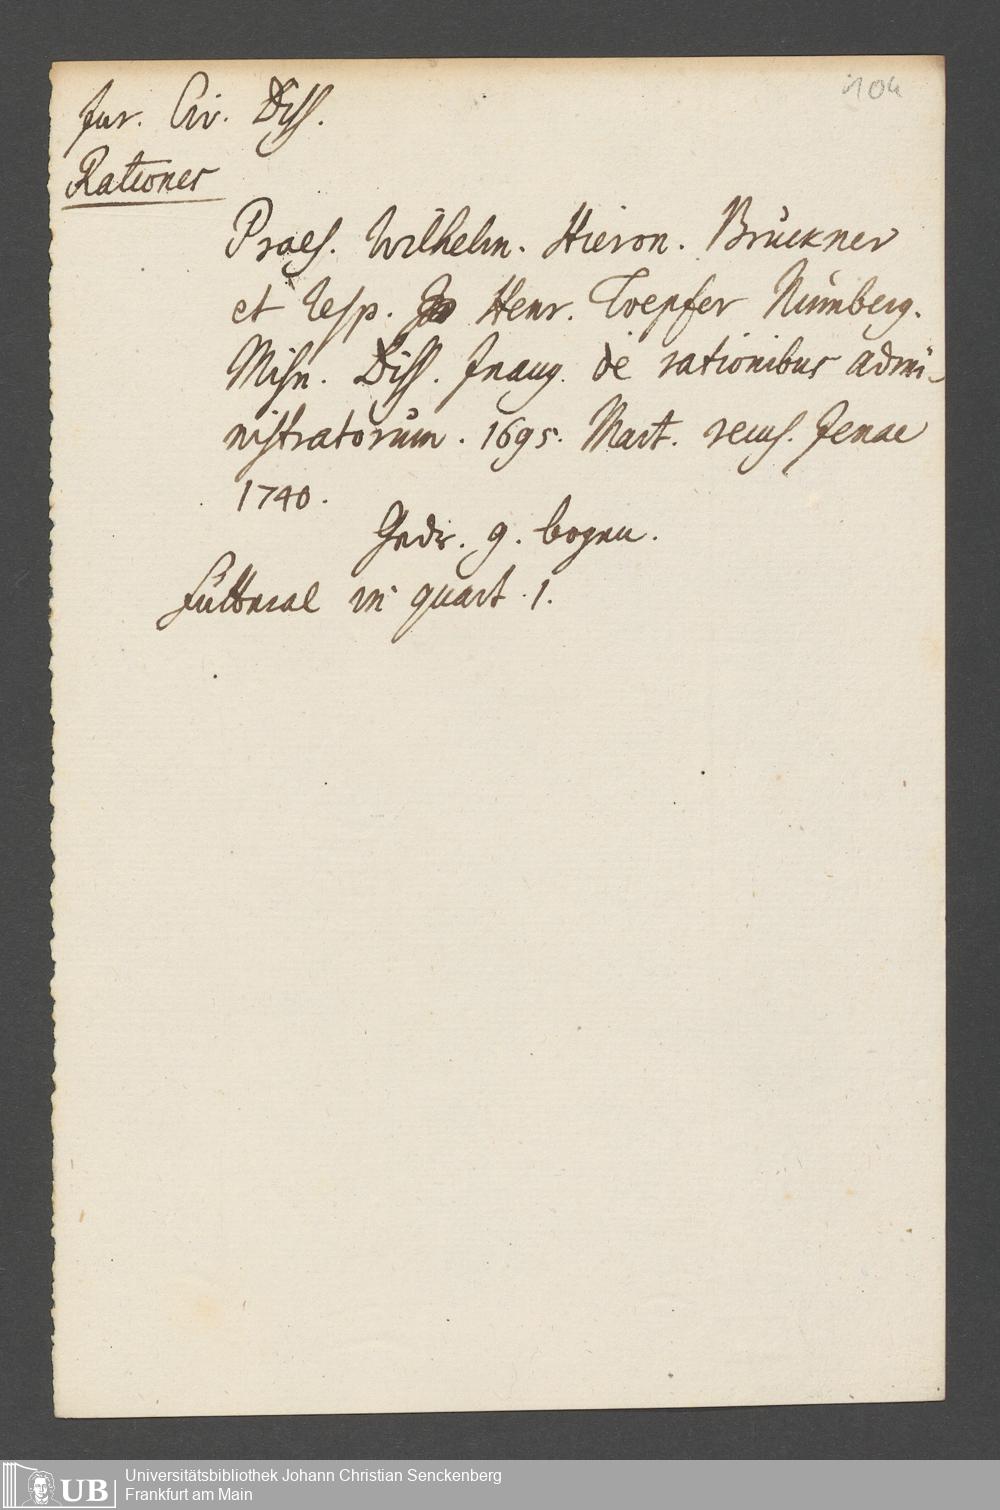 104
Jur. Civ. Diss.
Rationes
Praes. Wilhelm. Hieron. Brückner
et Resp. Henr. Toepfer Nürnberg.
Misn. Diss. Inaug. de rationibus admi-
nistratorum. 1695. Mart. recus. Jenae
1740.
Gedr. 9. bogen.
Futteral in quart. 1.
UB
Universitätsbibliothek Johann Christian Senckenberg
Frankfurt am Main